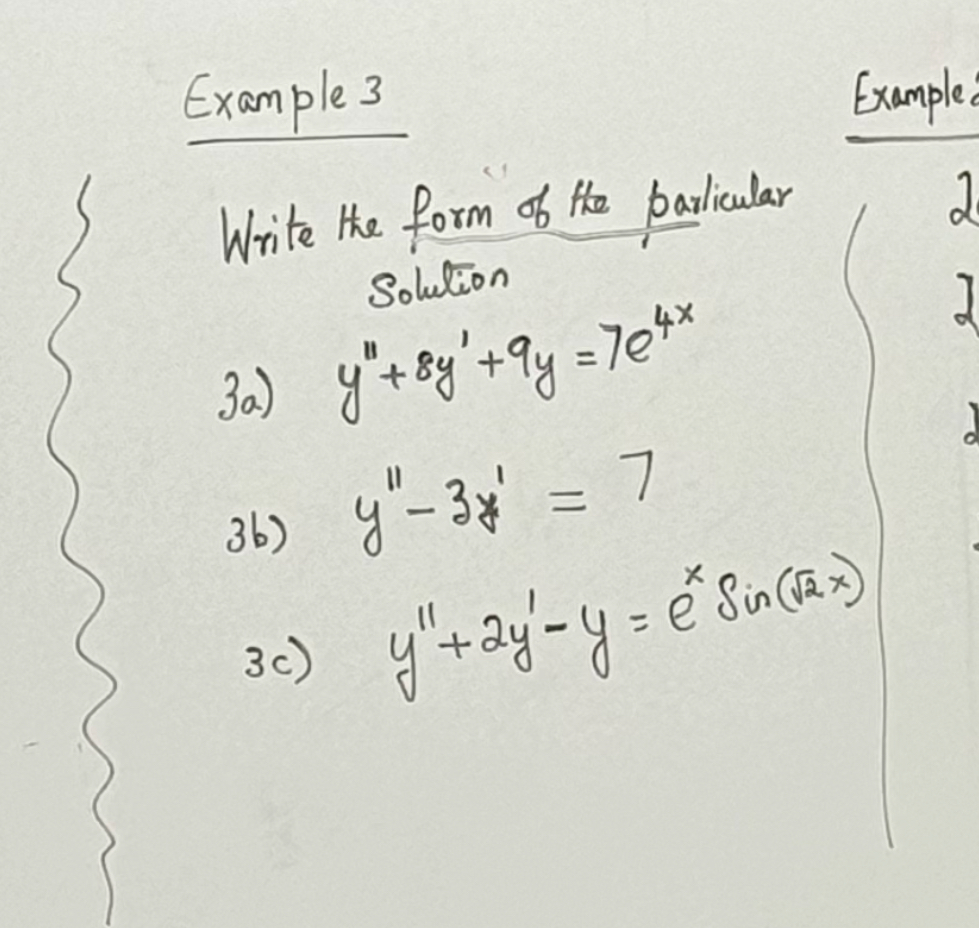 Example 3
Write the form of the particular
Solution
3a) y'' + 8y' + 9y = 7e^{4x}
3b) y'' - 3y' = 7
3c) y'' + 2y' - y = e^x Sin(√2 x)
Example